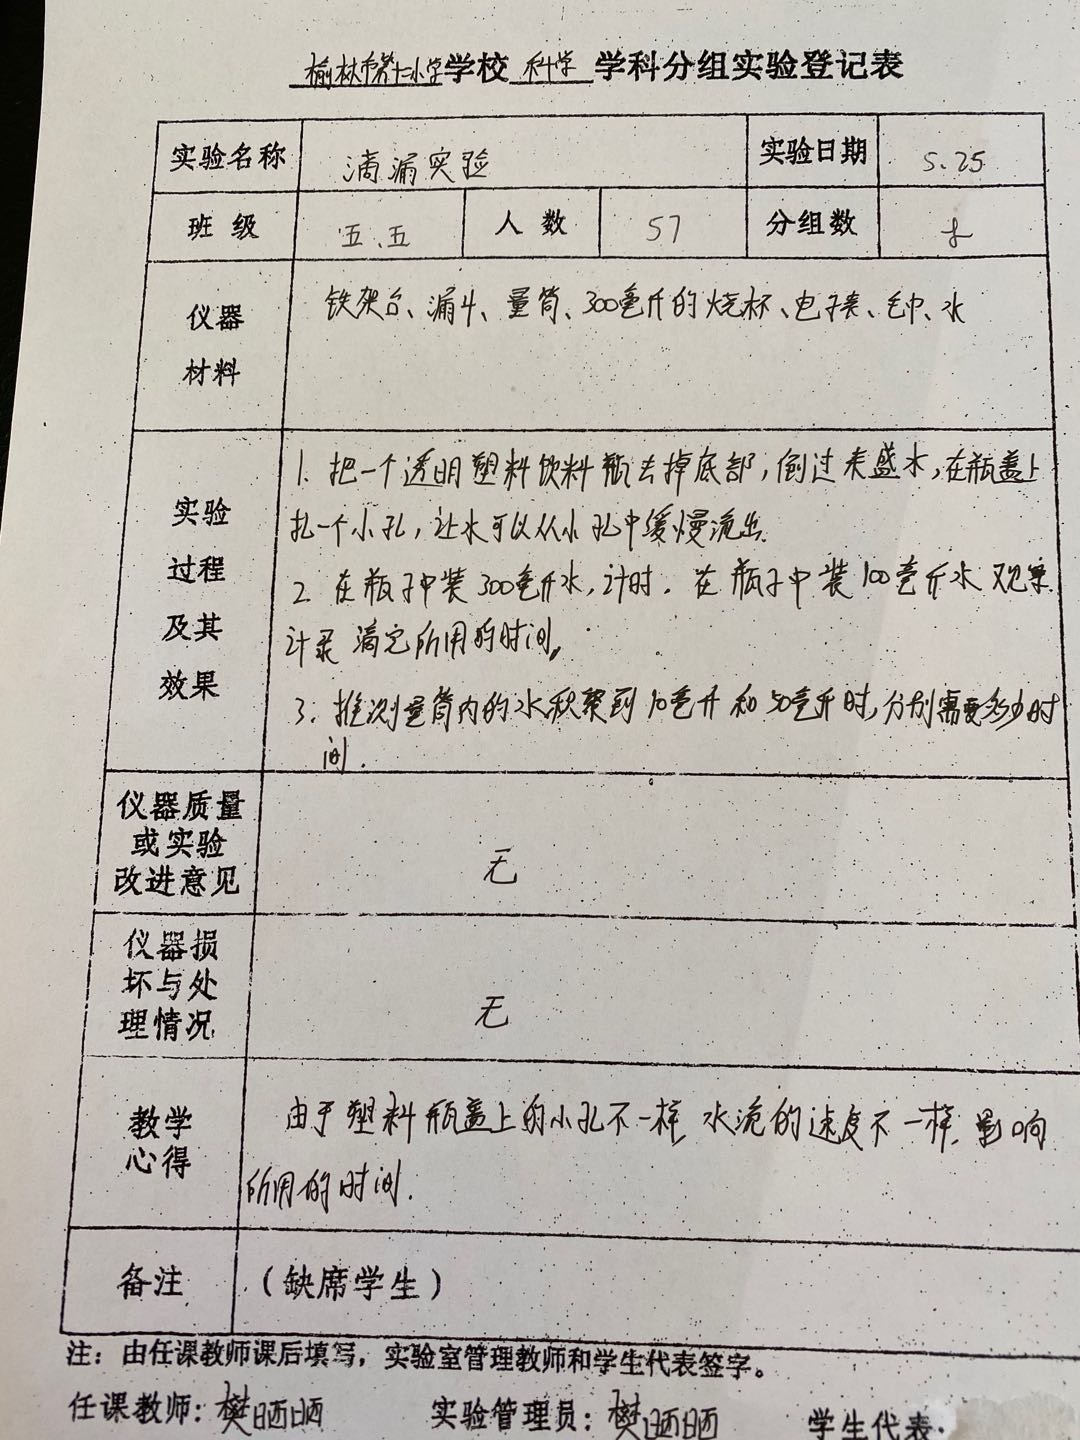 榆林市第十二小学学校 科学 学科分组实验登记表
实验名称 滴漏实验 实验日期 5.25
班级 五.五 人数 57 分组数
仪器 铁架台、漏斗、量筒、300毫升的烧杯、电子表、毛巾、水
材料
1. 把一个透明塑料饮料瓶去掉底部,倒过来盛水,在瓶盖上
实验 扎一个小孔,让水可以从小孔中缓慢流出.
过程 2. 在瓶子中装300毫升水,计时. 在瓶子中装100毫升水 观察
及其 计录 滴完所用的时间。
效果 3. 推测量筒内的水积聚到10毫升和50毫升时,分别需要多少时
间.
仪器质量
或实验 无
改进意见
仪器损
坏与处 无
理情况
教学 由于塑料瓶盖上的小孔不一样,水流的速度不一样.影响
心得 所用的时间.
备注 (缺席学生)
注:由任课教师课后填写,实验室管理教师和学生代表签字。
任课教师:樊晒晒 实验管理员:樊晒晒 学生代表: